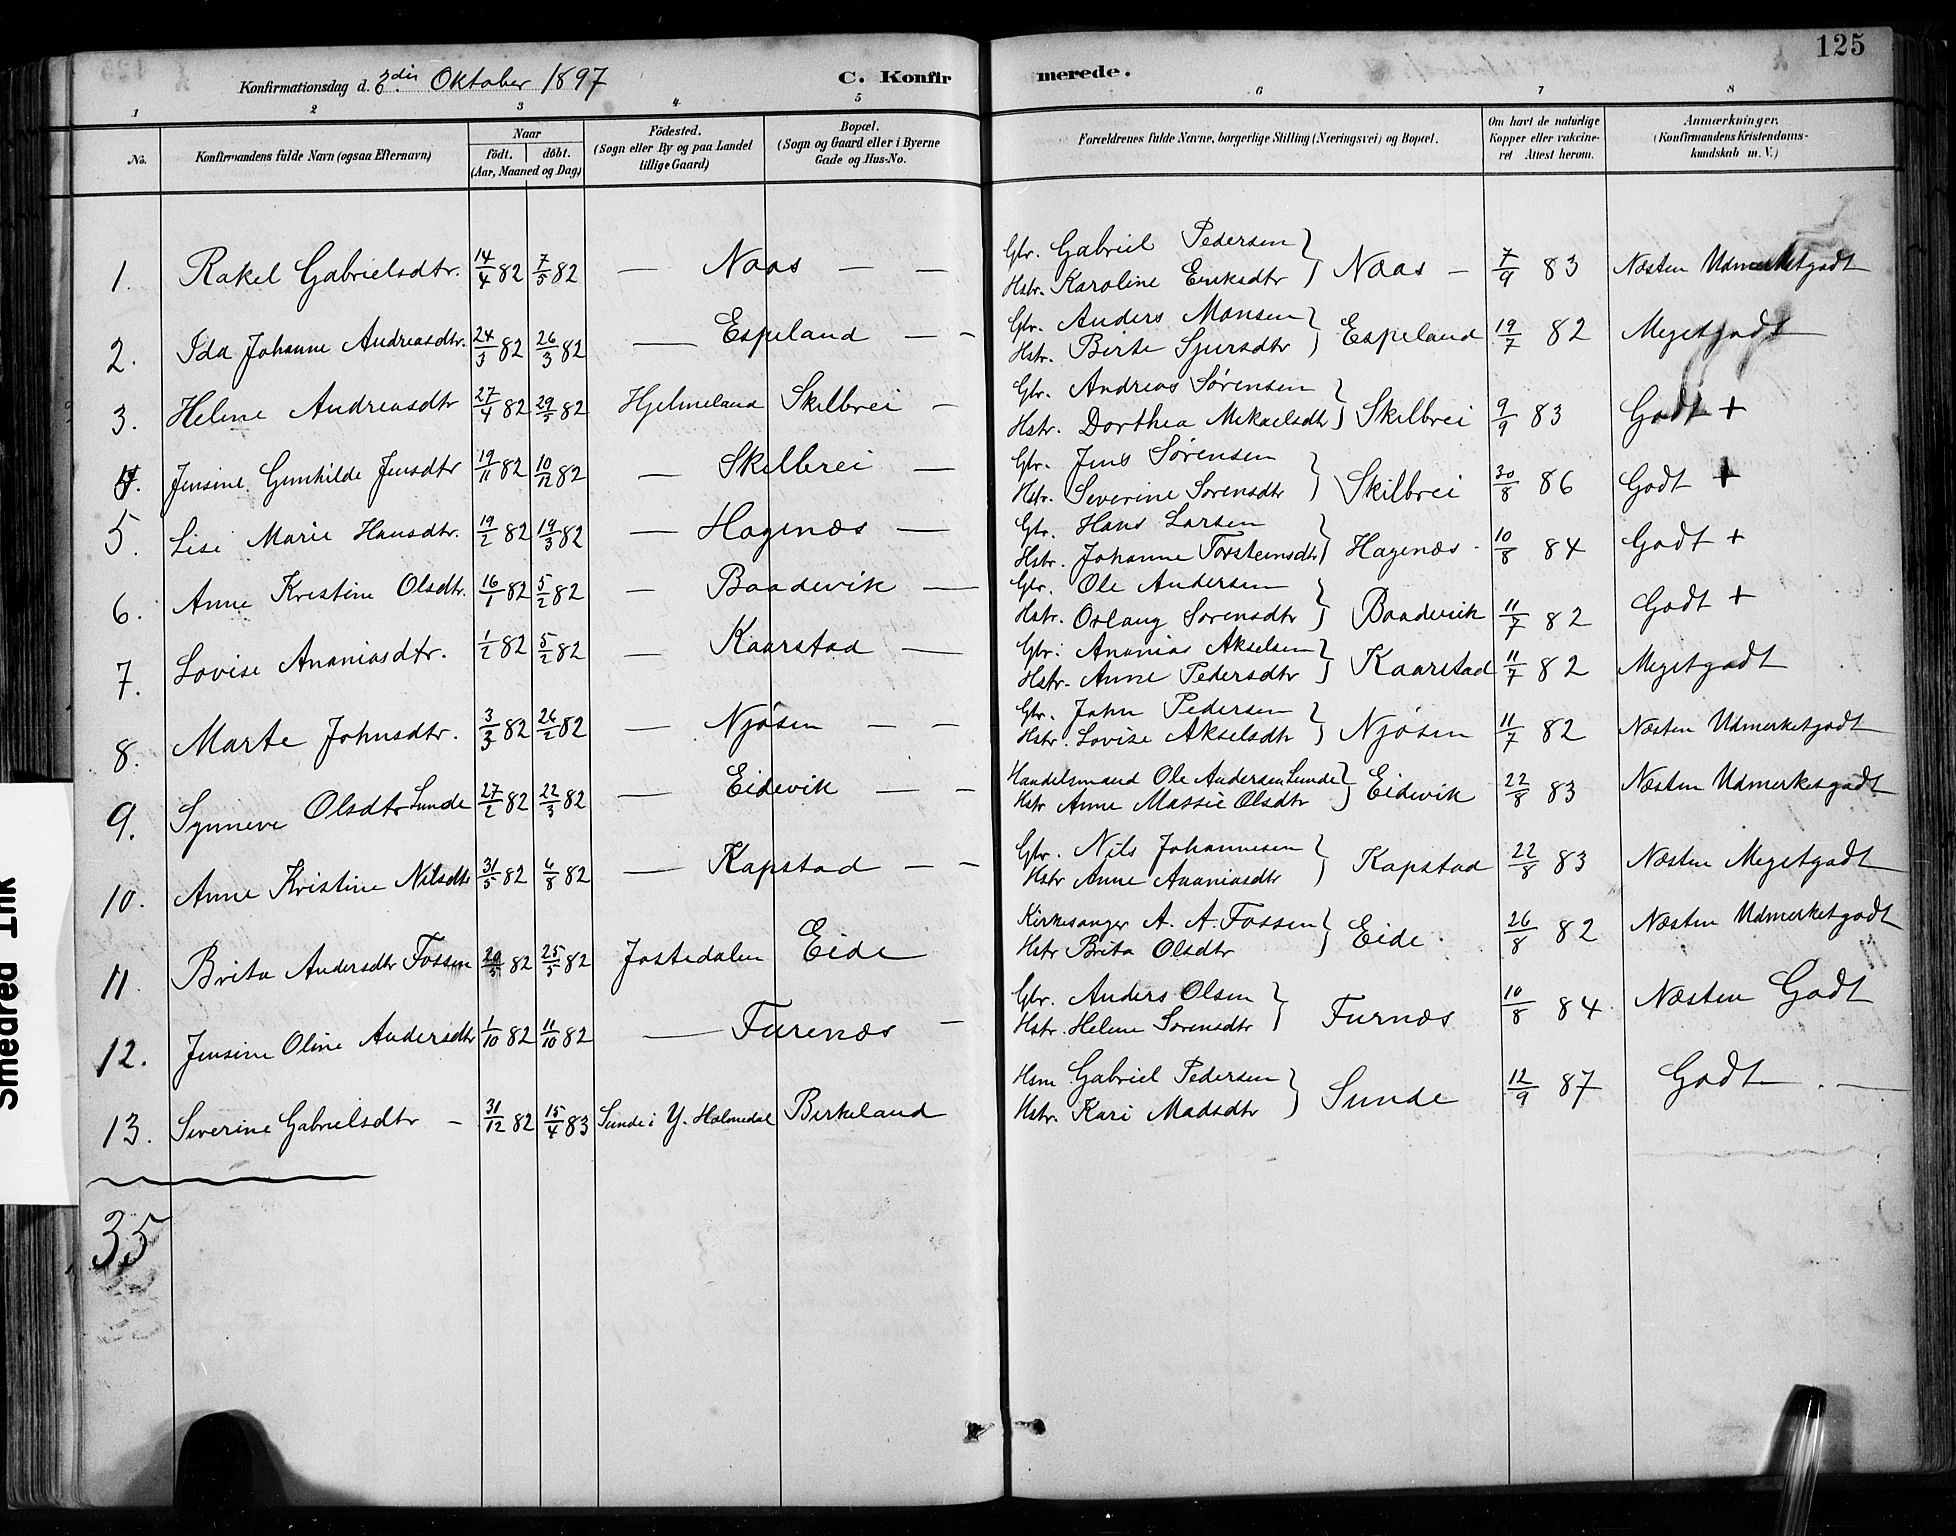 125
Konfirmationsdag d. 3die Oktober 1897 C. Konfirmerede.
1 2 3 4 5 6 7 8
No. Konfirmandens fulde Navn (ogsaa Efternavn) Naar født. døbt. (Aar, Maaned og Dag) Fødested. (Sogn eller By og paa Landet tillige Gaard) Bopæl. (Sogn og Gaard eller i Byerne Gade og Hus-No. Forældrenes fulde Navne, borgerlige Stilling (Næringsvei) og Bopæl. Om havt de naturlige Kopper eller vakcineret Attest herom. Anmærkninger. (Konfirmandens Kristendomskundskab m. V.)
1. Rakel Gabrielsdtr. 14/4 82 7/5 82 — Naas — — Gbr. Gabriel Pedersen Hstr. Karoline Eriksdtr } Naas — 7/9 83 Næsten Udmerketgodt
2. Ida Johanne Andreasdtr. 24/3 82 26/3 82 — Espeland — - Gbr. Anders Monsen Hstr. Birte Sjursdtr } Espeland 19/7 82 Megetgodt
3. Helene Andreasdtr 27/4 82 29/5 82 Hjelmeland Skilbrei - Gbr. Andreas Sørensen Hstr. Dorthea Mikaelsdtr } Skilbrei 9/9 83 Godt +
4. Jensine Gunhilde Jensdtr 19/11 82 10/12 82 — Skilbrei — Gbr. Jens Sørensen Hstr. Severine Sørensdtr } Skilbrei 30/8 86 Godt +
5. Lise Marie Hansdtr. 19/2 82 19/3 82 — Hagenæs — Gbr. Hans Larsen Hstr. Johanne Torsteinsdtr } Hagenæs - 10/8 84 Godt +
6. Anne Kristine Olsdtr. 16/1 82 5/2 82 - Baadevik — Gbr. Ole Andersen Hstr. Oslaug Sørensdtr } Baadevik 11/7 82 Godt +
7. Lovise Ananiasdtr. 1/2 82 5/2 82 — Kaarstad — Gbr. Ananias Akselsen Hstr. Anne Pedersdtr } Kaarstad 11/7 82 Megetgodt
8. Marte Johnsdtr. 3/3 82 26/2 82 — Njøsen — - Gbr. John Pedersen Hstr. Lovise Akselsdtr } Njøsen 11/7 82 Næsten Udmerketgodt
9. Synneve Olsdtr Sunde 27/2 82 22/3 82 — Eidevik — - Handelsmand Ole Andersen Sunde Hstr Anne Massie Olsdtr } Eidevik 22/8 83 Næsten Udmerketgodt
10. Anne Kristine Nilsdtr 31/5 82 6/8 82 — Kapstad — - Gbr. Nils Johannesen Hstr Anne Ananiasdtr } Kapstad 22/8 83 Næsten Megetgodt
11 Brita Andersdtr Fossen 82 25/5 82 Jostedalen Eide Kirkesanger A. A. Fossen Hstr Brita Olsdtr } Eide 26/8 82 Næsten Udmerketgodt
12. Jensine Oline Andersdtr 1/10 82 11/10 82 — Furenæs - Gbr. Anders Olsen Hstr. Helene Sørensdtr } Furnæs 10/8 84 Næsten Godt
13. Severine Gabrielsdtr - 31/12 82 15/4 83 Sunde i Y. Holmedal Birkeland Hsm Gabriel Pedersen Hstr. Kari Madsdtr } Sunde 12/9 87 Godt . —
35
Smedred Ink